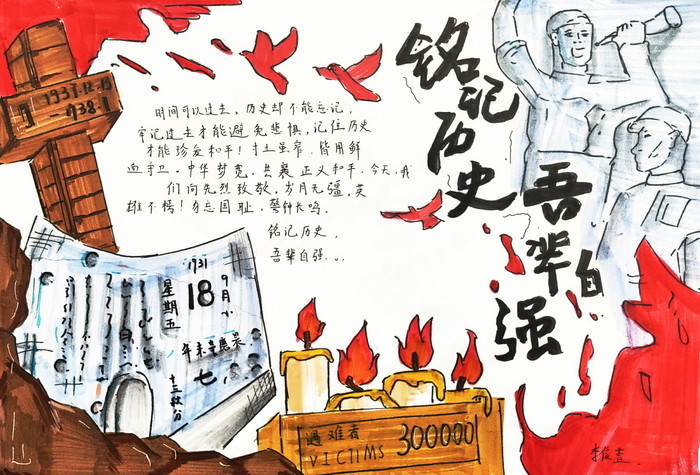 铭记历史
吾辈自强
1937.12.13
-1938.1
时间可以过去，历史却不能忘记，
牢记过去才能避免悲惧，记住历史
才能珍爱和平！寸土单穹，皆用鲜
血守卫。中华梦竟，共襄正义和平，今天，我
们向先烈致敬，岁月无疆，英
雄不朽！勿忘国耻，警钟长鸣。
铭记历史，
吾辈自强...
1931
9月小
18
星期五
年未辛
七
十三秋分
遇难者
VICTIMS 300000
李俊吉